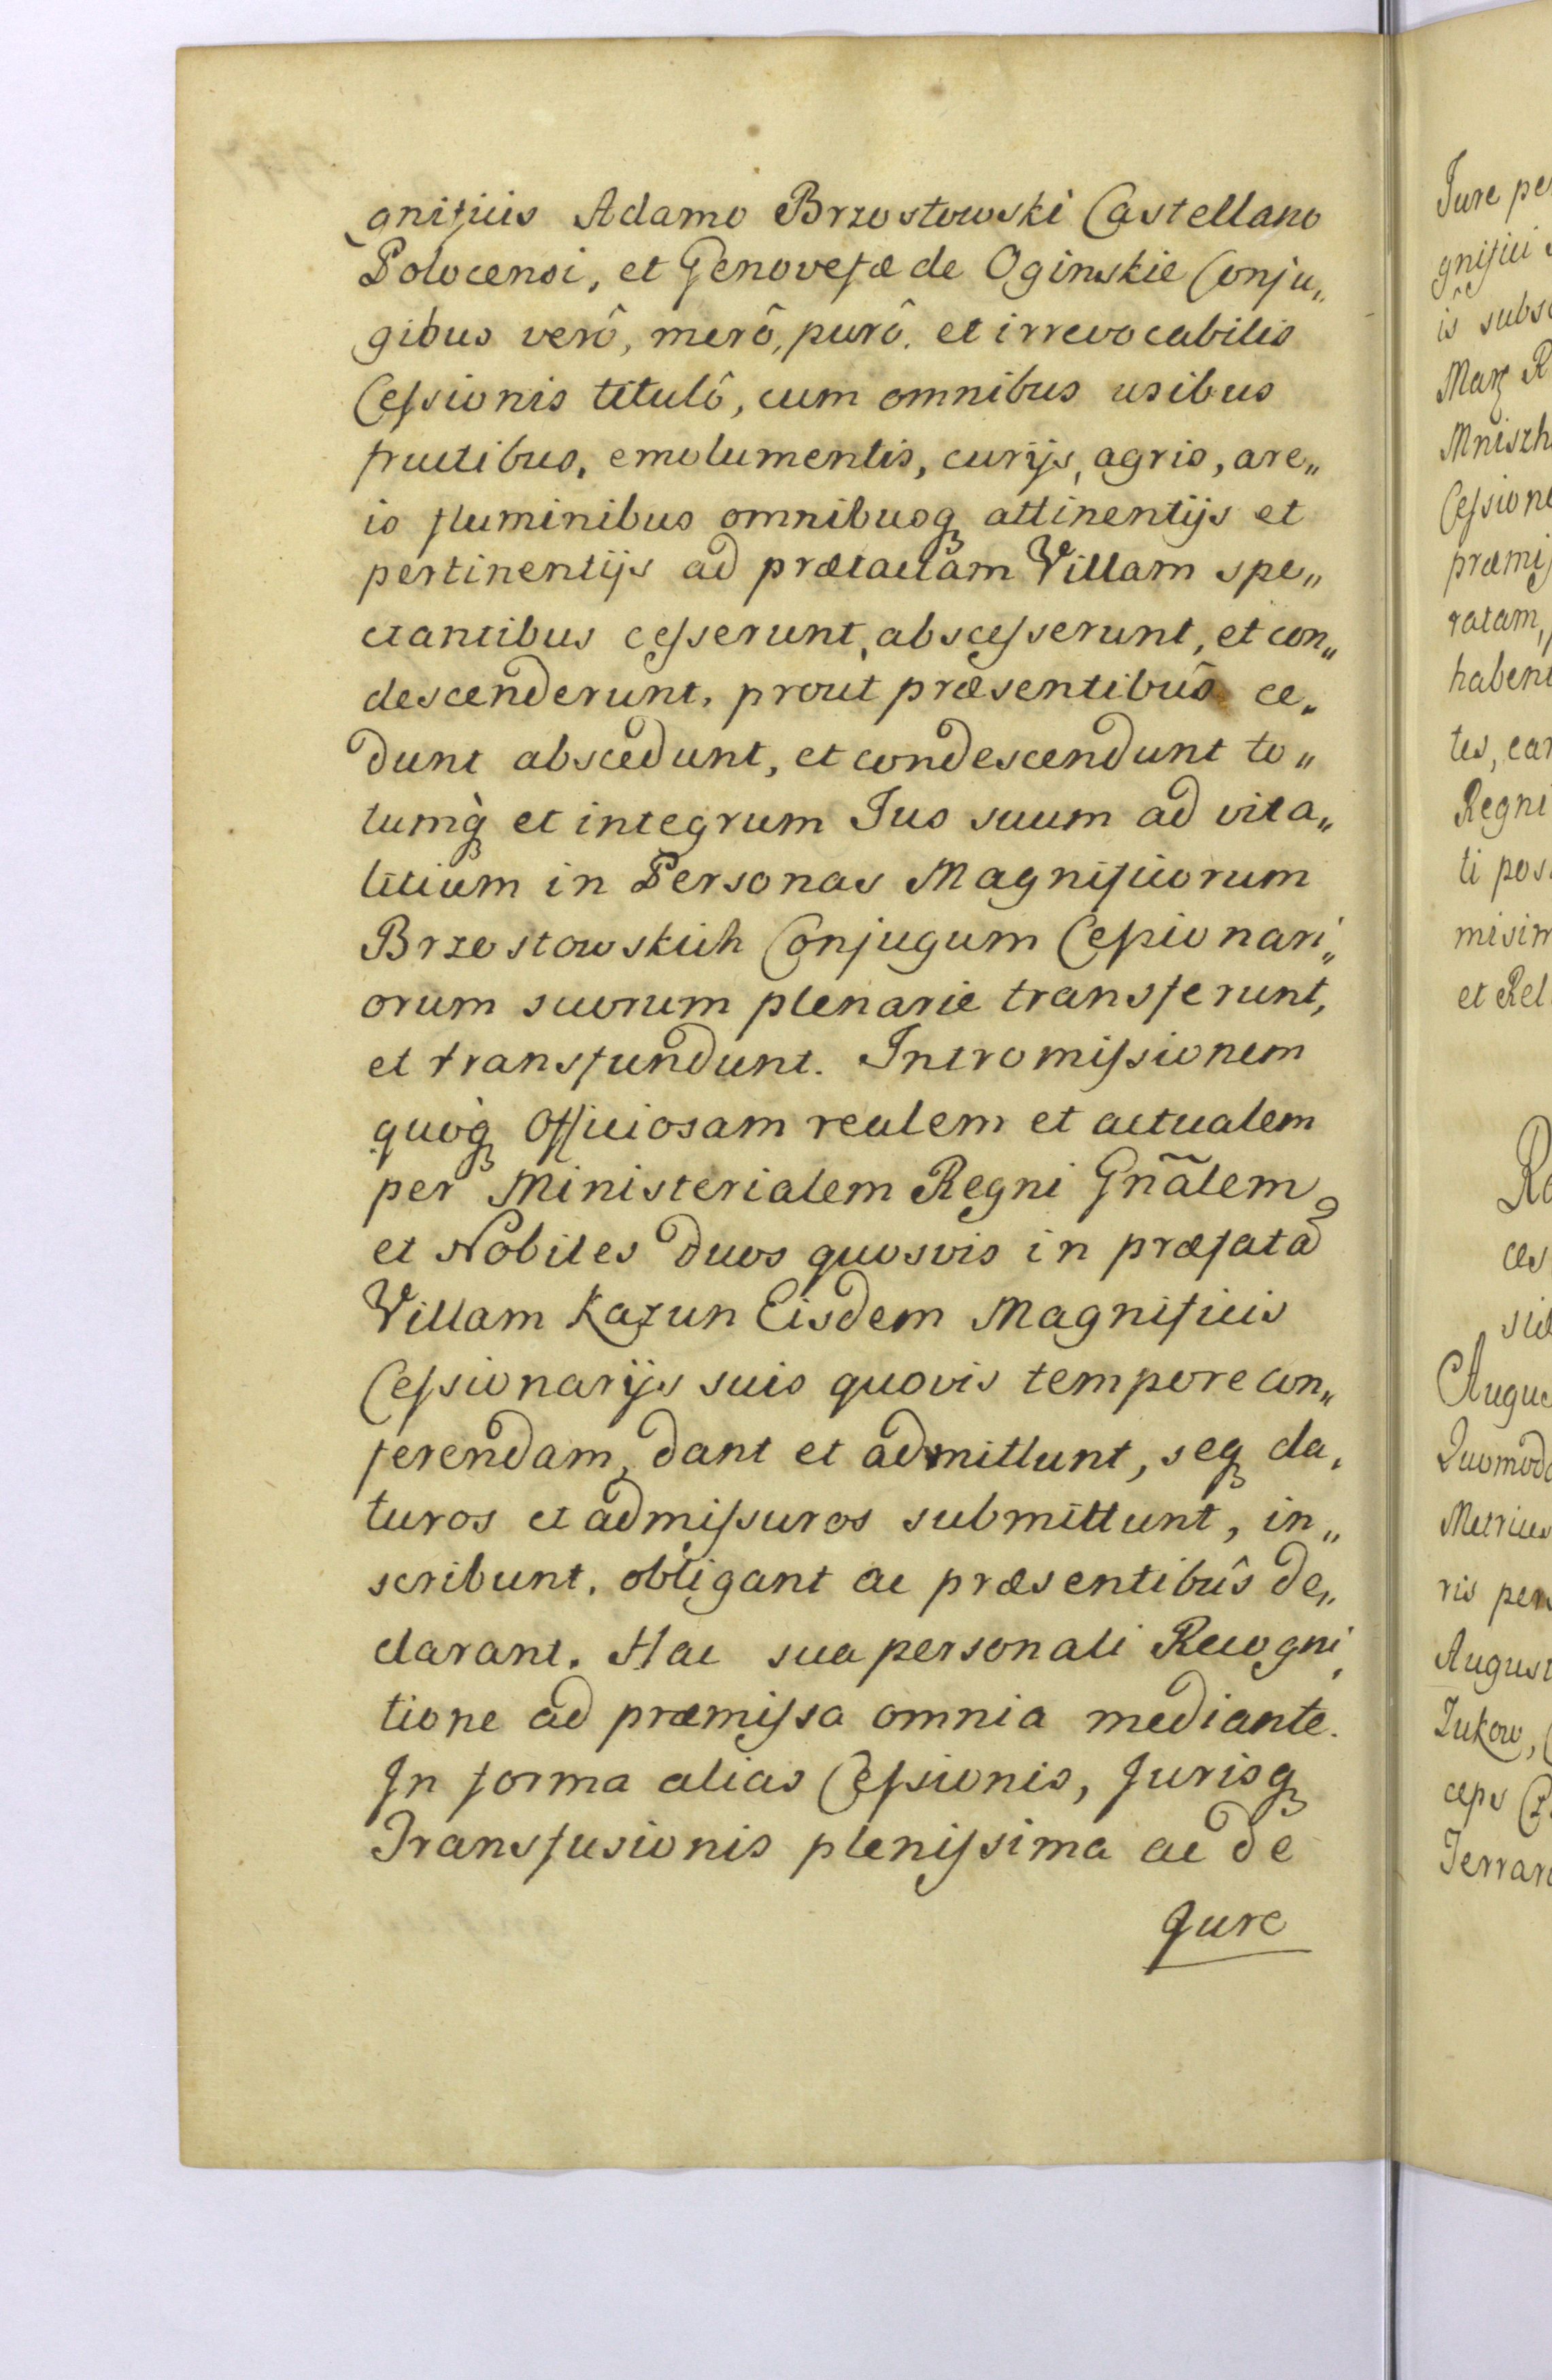 gnificis Adamo Brzostowski Castellano
Polocensi, et Genovefæ de Oginskie Conju„
gibus verô, merô, purô. et irrevocabilis
Cessionis titulô, cum omnibus usibus
fructibus, emolumentis, curijs, agris, are„
is fluminibus omnibusq attinentijs et
pertinentijs ad prætactam Villam spe„
ctantibus cesserunt, abscesserunt, et con„
descenderunt, prout præsentibûs ce„
dunt abscedunt, et condescendunt to„
tumq̀ et integrum Jus suum ad vita„
litium in Personas Magnificorum
Brzostowskich Conjugum Cessionari„
orum suorum plenarie transferunt,
et transfundunt. Intromissionem
quòq Officiosam realem et actualem
per Ministerialem Regni Gñalem
et Nobiles duos quosvis in præfatã
Villam Kazun Eisdem Magnificis
Cessionarijs suis quovis tempore con„
ferendam, dant et admittunt, seq da„
turos et admissuros submittunt, in„
scribunt, obligant ac præsentibûs de„
clarant. Hac sua personali Recogni„
tione ad præmissa omnia mediante.
In forma alias Cessionis, Jurisq
Transfusionis plenissima ac de
Jure
Jure pe
gnifici
is subs
Marz R
Mniszh
Cession
præmis
ratam,
habent
tes, ea
Regni
ti pos
misim
et Rel
ces
Augus
Quomodo
Metrices
ris per
August
Zukow,
ceps
Terrar